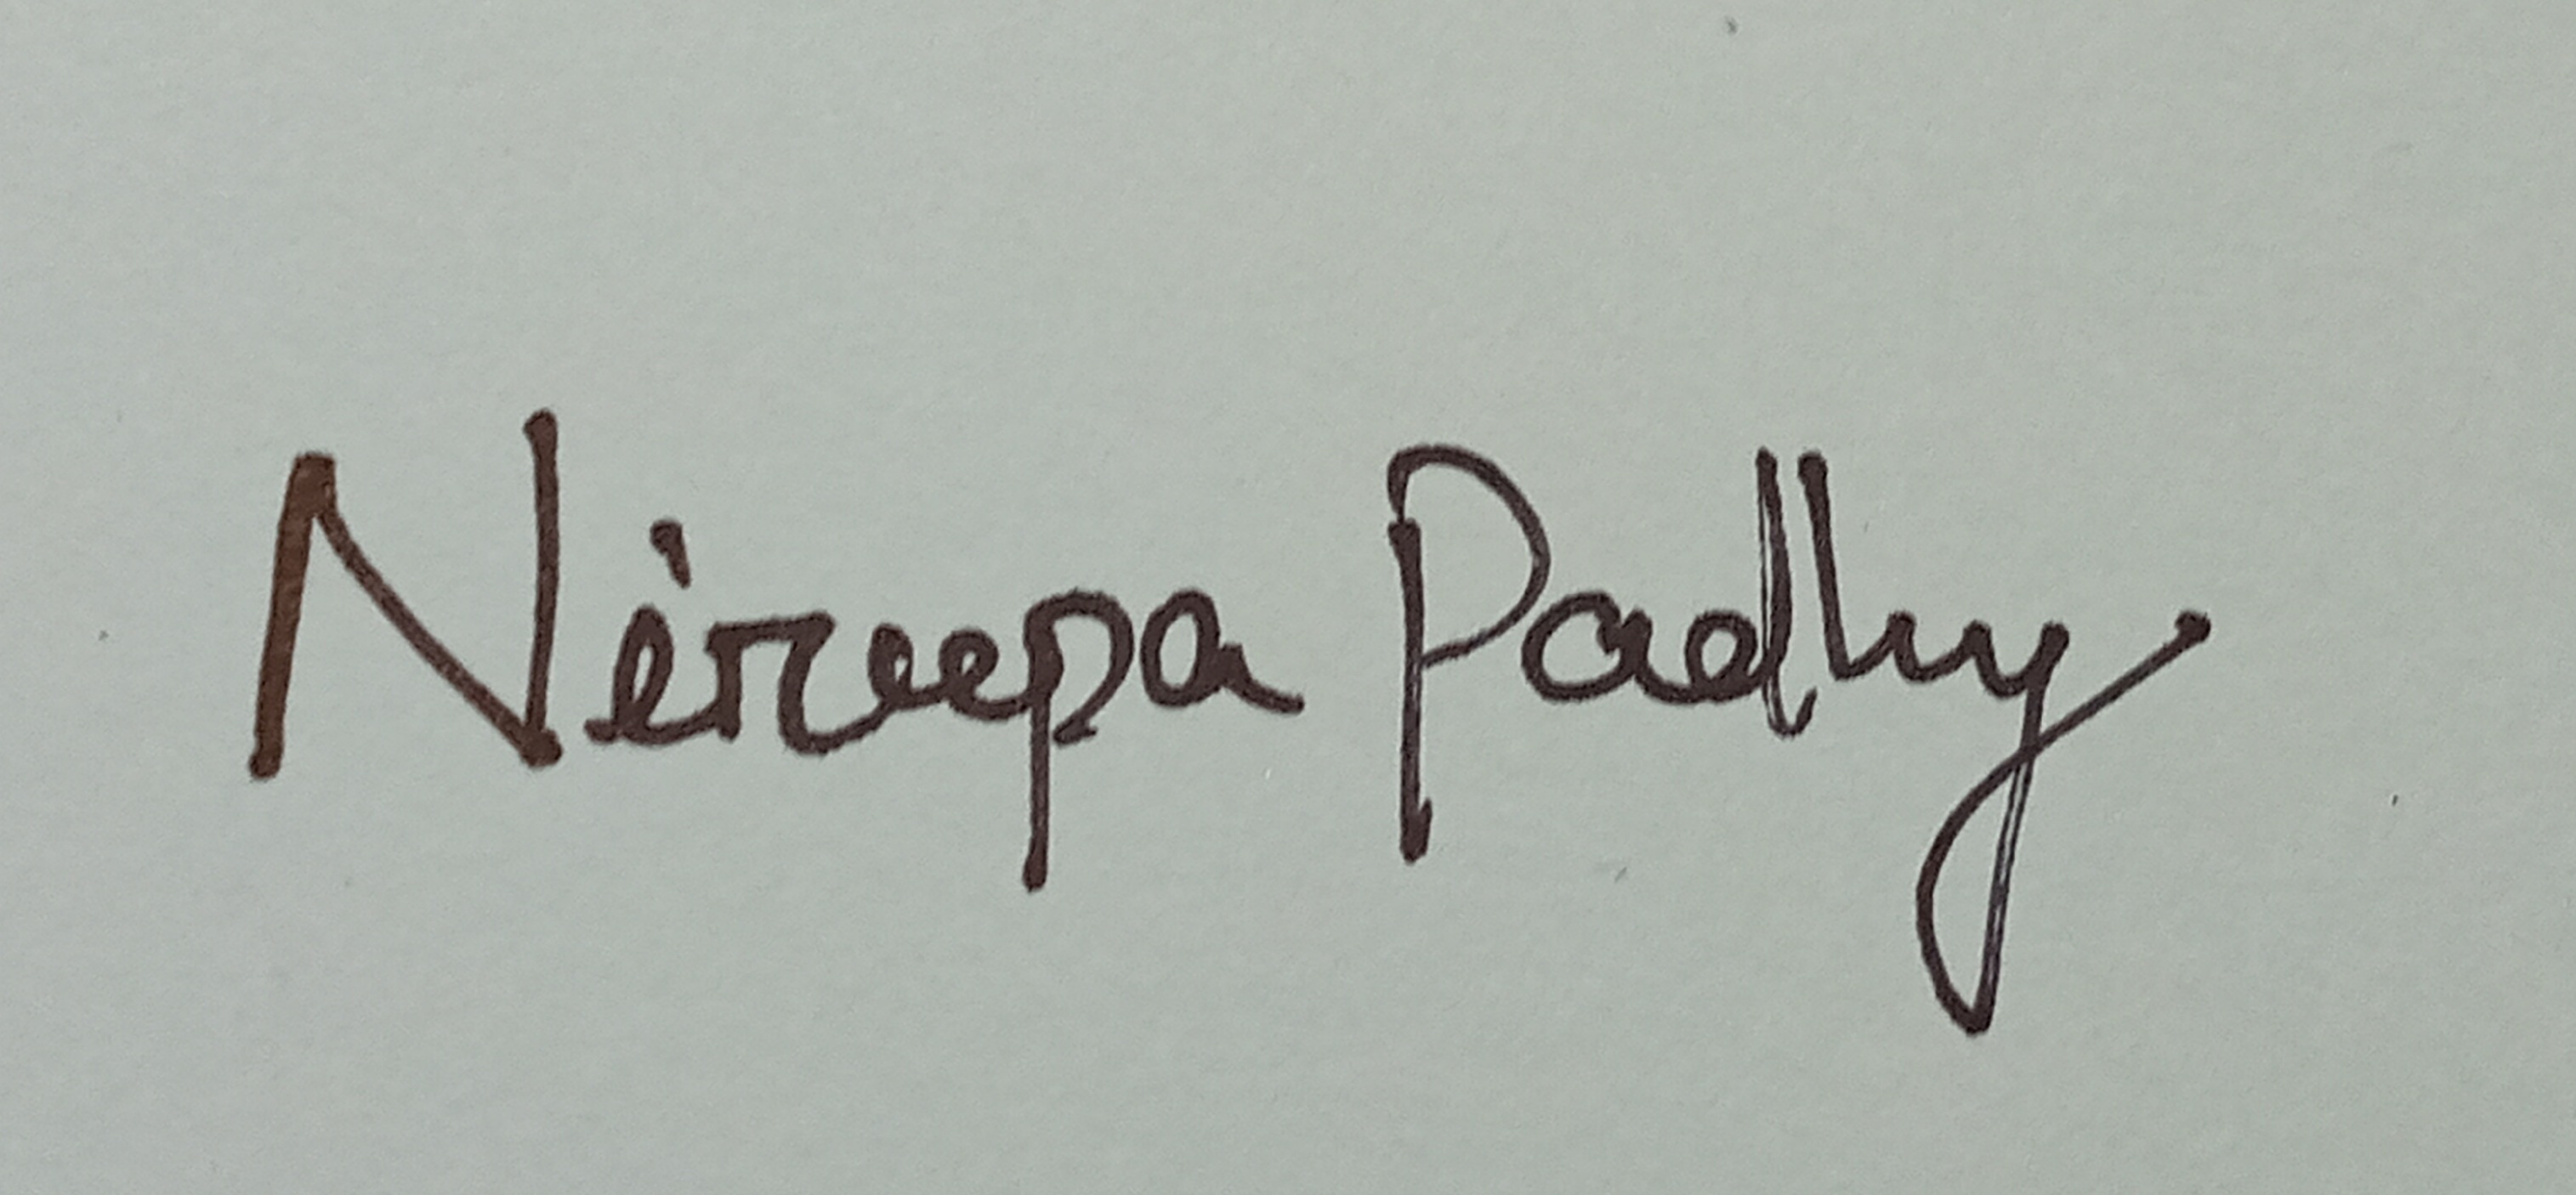 Nirupa Padhy